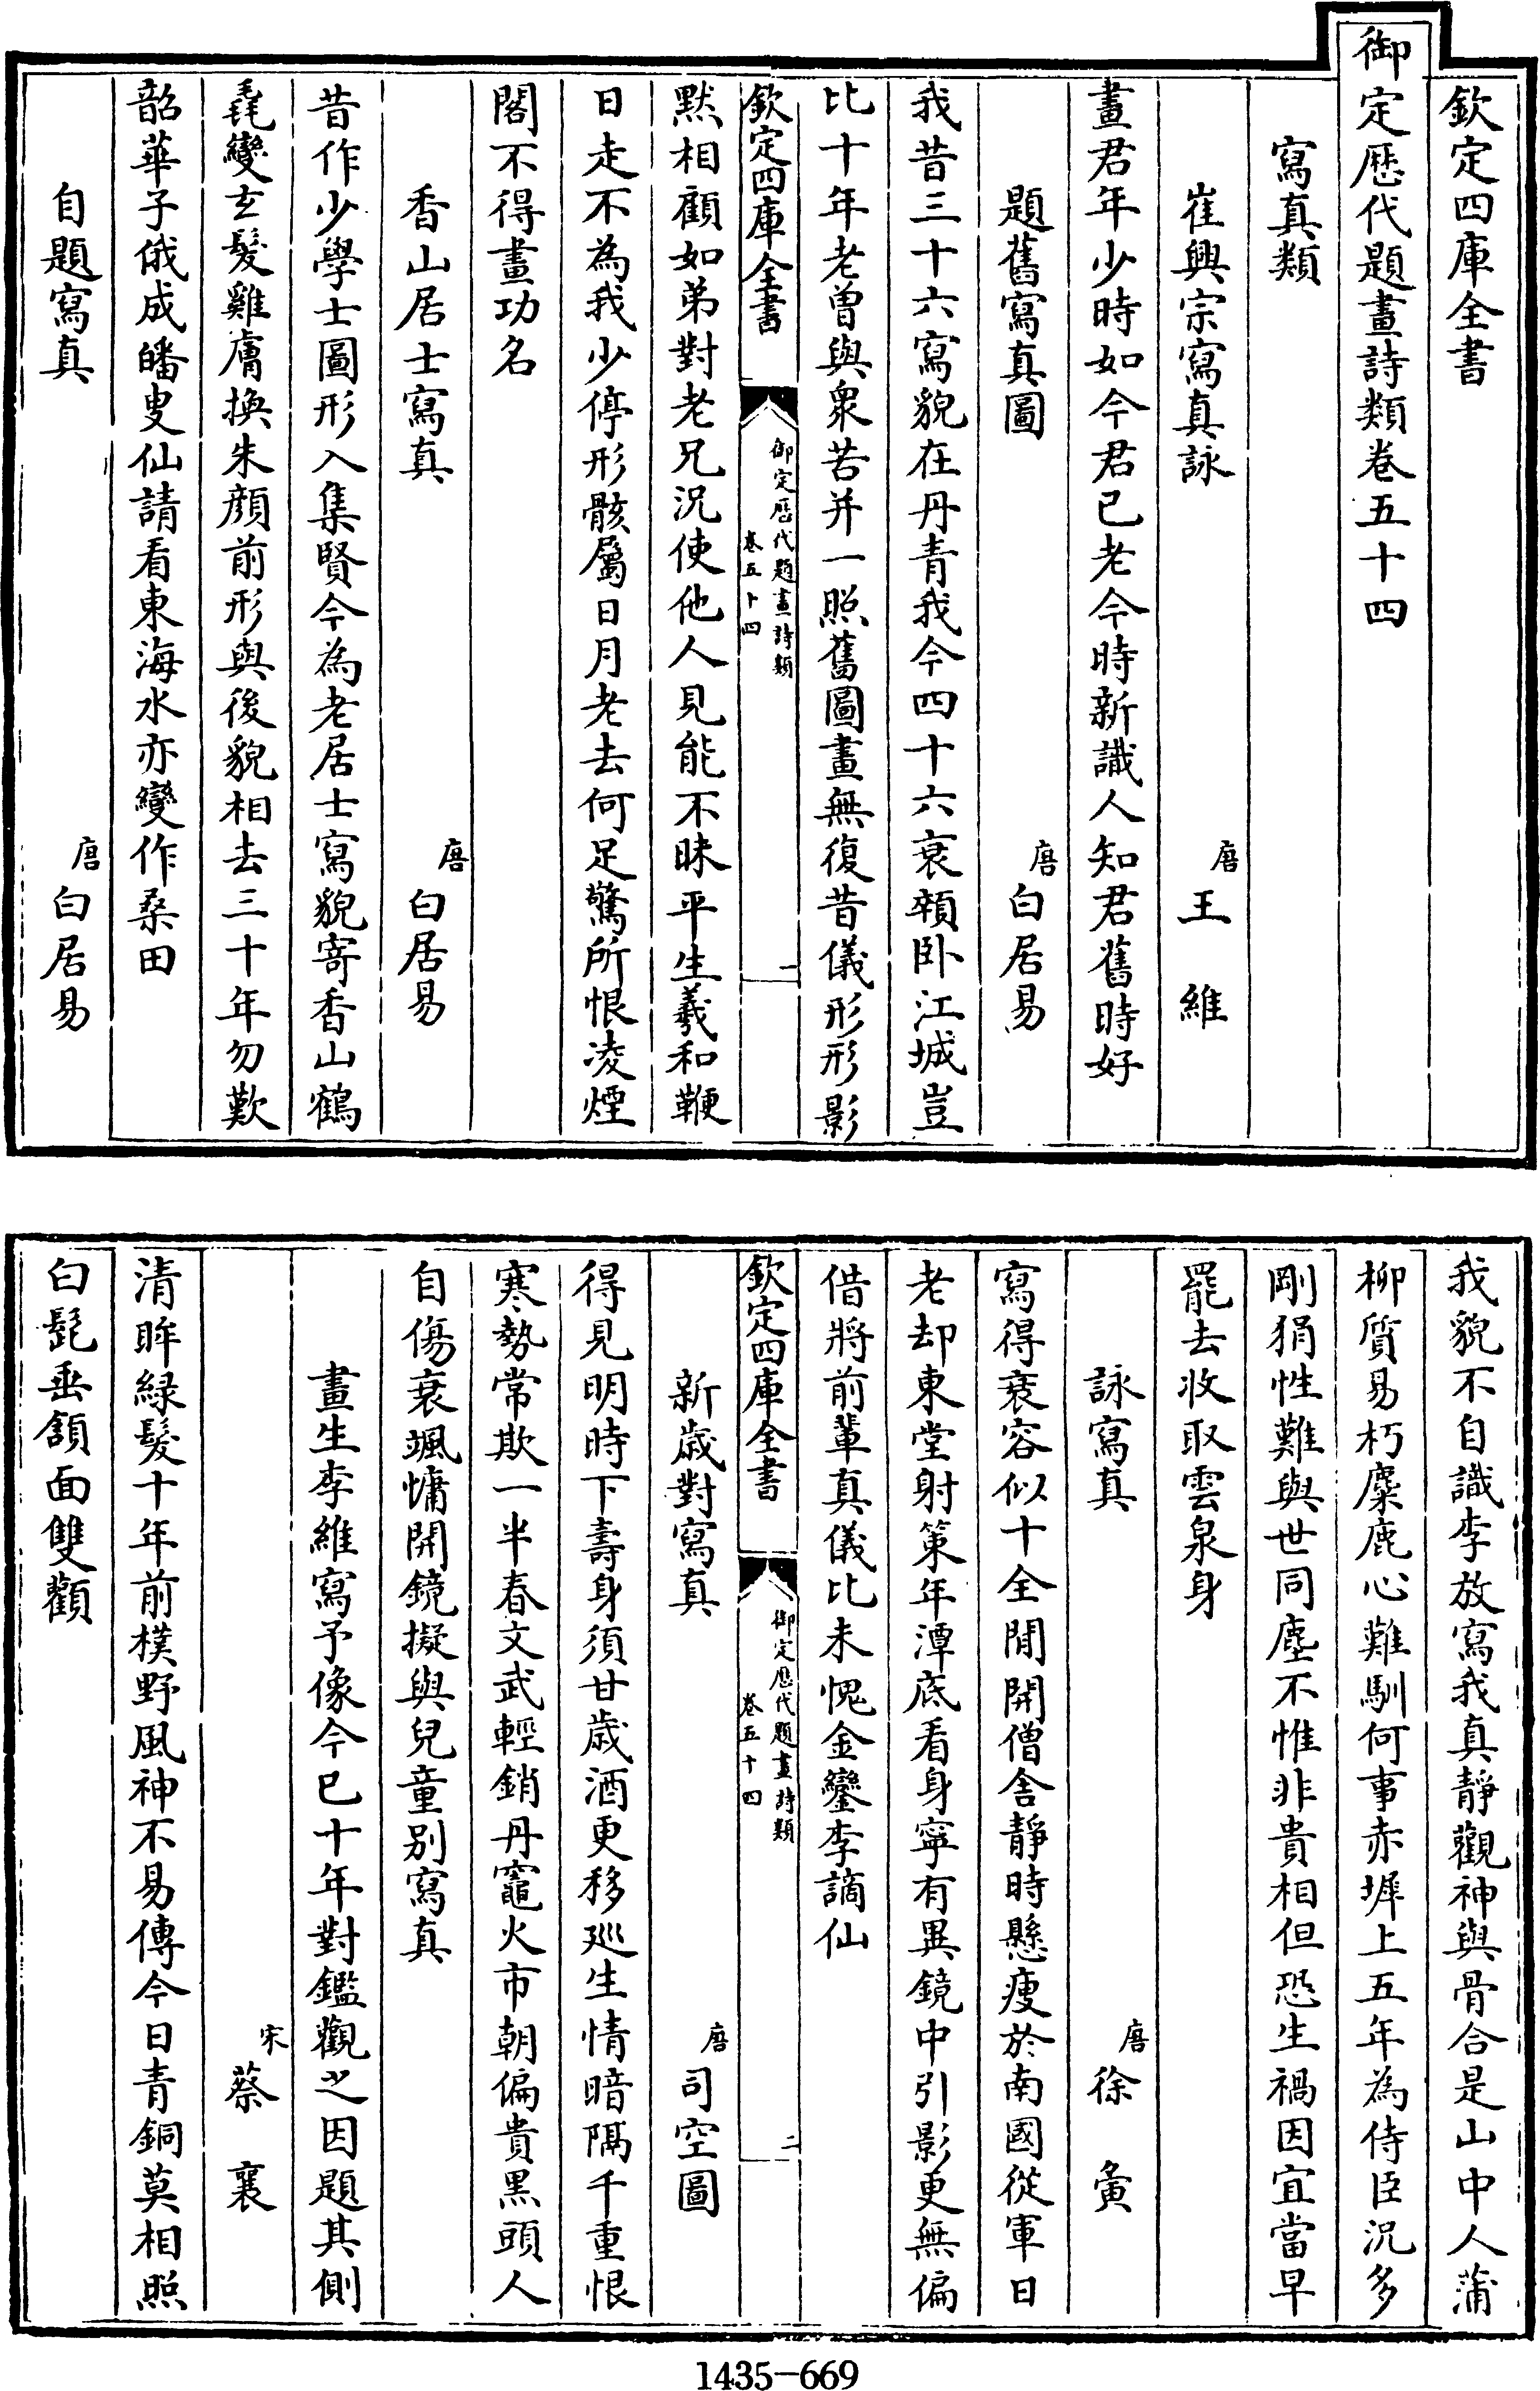 欽定四庫全書
御定歴代題畫詩類卷五十四
寫真類
崔興宗寫真詠 唐 王維
畫君年少時如今君已老今時新識人知君舊時好
題舊寫真圖 唐 白居易
我昔三十六寫貌在丹青我今四十六衰顇卧江城豈
比十年老曾與衆苦并一照舊圖畫無復昔儀形形影
欽定四庫全書 御定歴代題畫詩類 卷五十四 一
黙相顧如弟對老兄況使他人見能不昧平生羲和鞭
日走不為我少停形骸屬日月老去何足驚所恨凌煙
閣不得畫功名
香山居士寫真 唐 白居易
昔作少學士圖形入集賢今為老居士寫貌寄香山鶴
毳變玄髮雞膚換朱顔前形與後貌相去三十年勿歎
韶華子俄成皤叟仙請看東海水亦變作桑田
自題寫真 唐 白居易
我貌不自識李放寫我真靜觀神與骨合是山中人蒲
柳質易朽麋鹿心難馴何事赤墀上五年為侍臣況多
剛狷性難與世同塵不惟非貴相但恐生禍因宜當早
罷去收取雲泉身
詠寫真 唐 徐夤
寫得衰容似十全閒開僧舍靜時懸瘦於南國從軍日
老却東堂射策年潭底看身寧有異鏡中引影更無偏
借將前輩真儀比未愧金鑾李謫仙
欽定四庫全書 御定歴代題畫詩類 卷五十四 二
新歲對寫真 唐 司空圖
得見明時下壽身須甘歲酒更移廵生情暗隔千重恨
寒勢常欺一半春文武輕銷丹竈火市朝偏貴黑頭人
自傷衰颯慵開鏡擬與兒童别寫真
畫生李維寫予像今已十年對鑑觀之因題其側
宋 蔡襄
清眸緑髮十年前樸野風神不易傳今日青銅莫相照
白髭垂頷面雙顴
1435-669